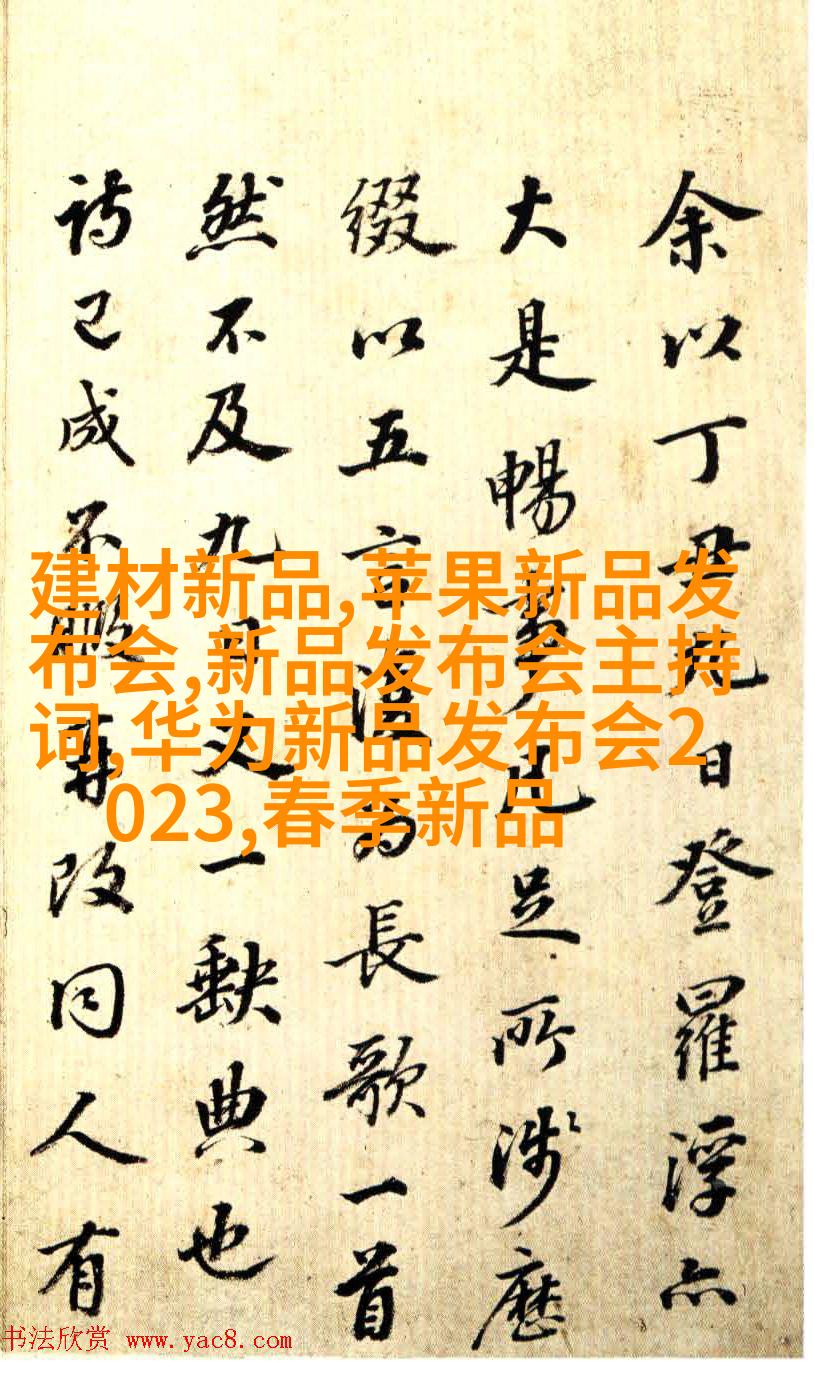 余以丁丑九日登羅浮亦
大是暢凡足所涉歷
綴以五言為長歌一首
然不及九日又一缺典也
詩已成不暇再改同人有
建材新品,苹果新品发
布会,新品发布会主持
词,华为新品发布会2
023,春季新品
书法欣赏 www.yac8.com